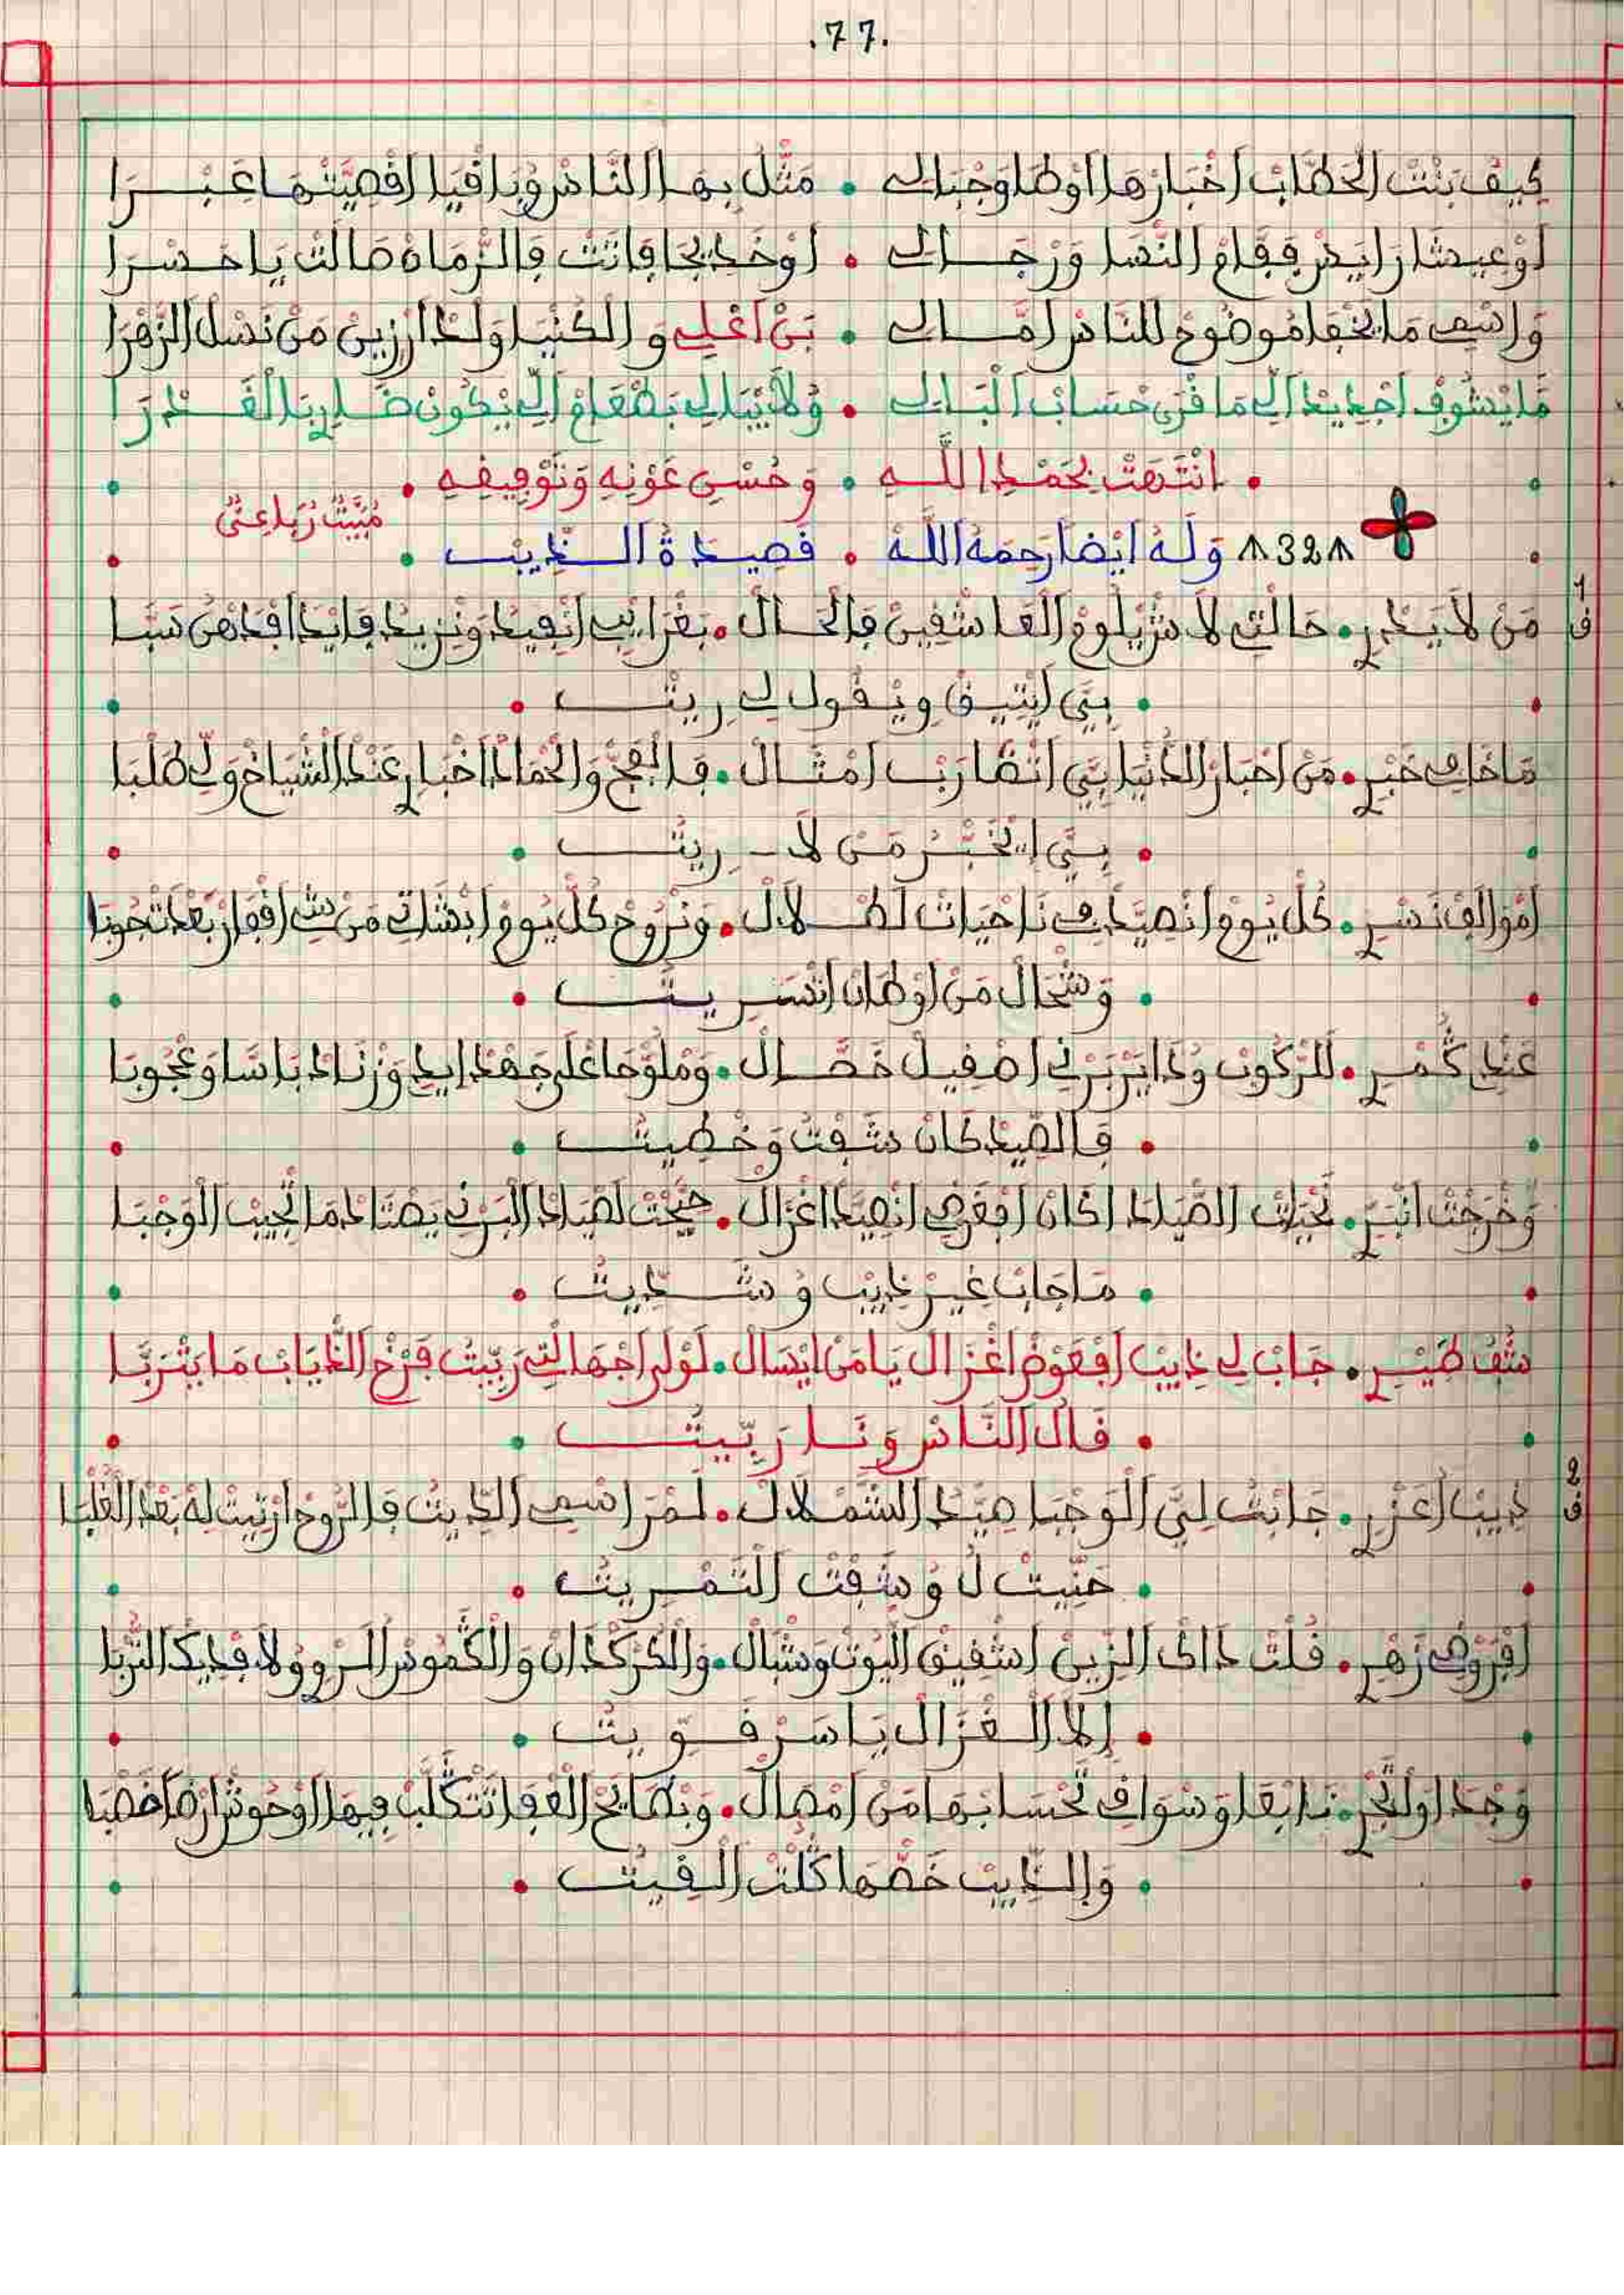 .77.
كيف بنت الخطاب اخبارها اوطا وجبال • مثل بها الناس وباقيا اقصيتها عبرا
او عيشا رايس فقام النسا ورجال • اوخديجا فاتت فالزمان طالت يا حسرا
واسمي ما يخفا موضوح للناس امال • بن اعلي والكنيا ولد ارزين من نسل الزهرا
ما يشوف اجديد الي ما قرى حساب البال • ولا يبالي بطعام الي يكون ضاري بالقدرا
• انتهت بحمد الله • وحسن عونه وتوفيقه •
مبيت رباعي
∧32∧ وله ايضا رحمه الله • قصيدة الذيب •
ق1 من لا يدري • حالتي لاش يلوم العاشقين فالحال • بغرايب انفيد ونزيد فايدا افذهن سبا
• بي ايتيق ويقول لي ريت •
ما خافي خبير • من اخبار الدنيا بي اتضارب امثال • فالفج والحمادا اخباري عند الشياخ ولي طلبا
• بي ايخبر من لا ريت •
اموالف نسري • كل يوم انصيد في ناحيات لطلال • ونروح كل يوم ابشاتي من شي اقفار بعدت جوبا
• وشحال من اوطان انسريت •
عندي كمري • للركوب وذا يبربري اصقيل خصال • وملوحا على جهد ايدي وزناد باسا وعجوبا
• فالصيد كان شفت وخطيت •
وخرجت انبري • تحيات الصيادا اكان افغرضي انصيد اغزال • جيحت لصياد البرني يصتاد ما تجيب الوجبا
• ما جاب غير ذيب وشديت •
شف طيري • جاب لي ذيب افعوض اغزال يا من ايسال • لولى اجهالتي ربيت فرخ الذياب ما يتربا
• قال الناس ونا ربيت •
ق2 ذيب اعزري • جابت لي الوجبا صيد الشملال • لمر اسمي الذيب فالروح ارتيت له بعد الغلبا
• حنيت ل وشفت التمريت •
افروضي زهري • قلت ذاك الزين اشقيق اليوت وشبال • والكركدان والكموس السروو ولا فديك التربا
• إلا الغزال ياسر قويت •
وجد اولتجري • نابقا وسوافي تحسابها من امصال • وبطايح العقا تتكلب فيها اوحوش ارضا خصبا
• والذيب خصها كلت القيت •